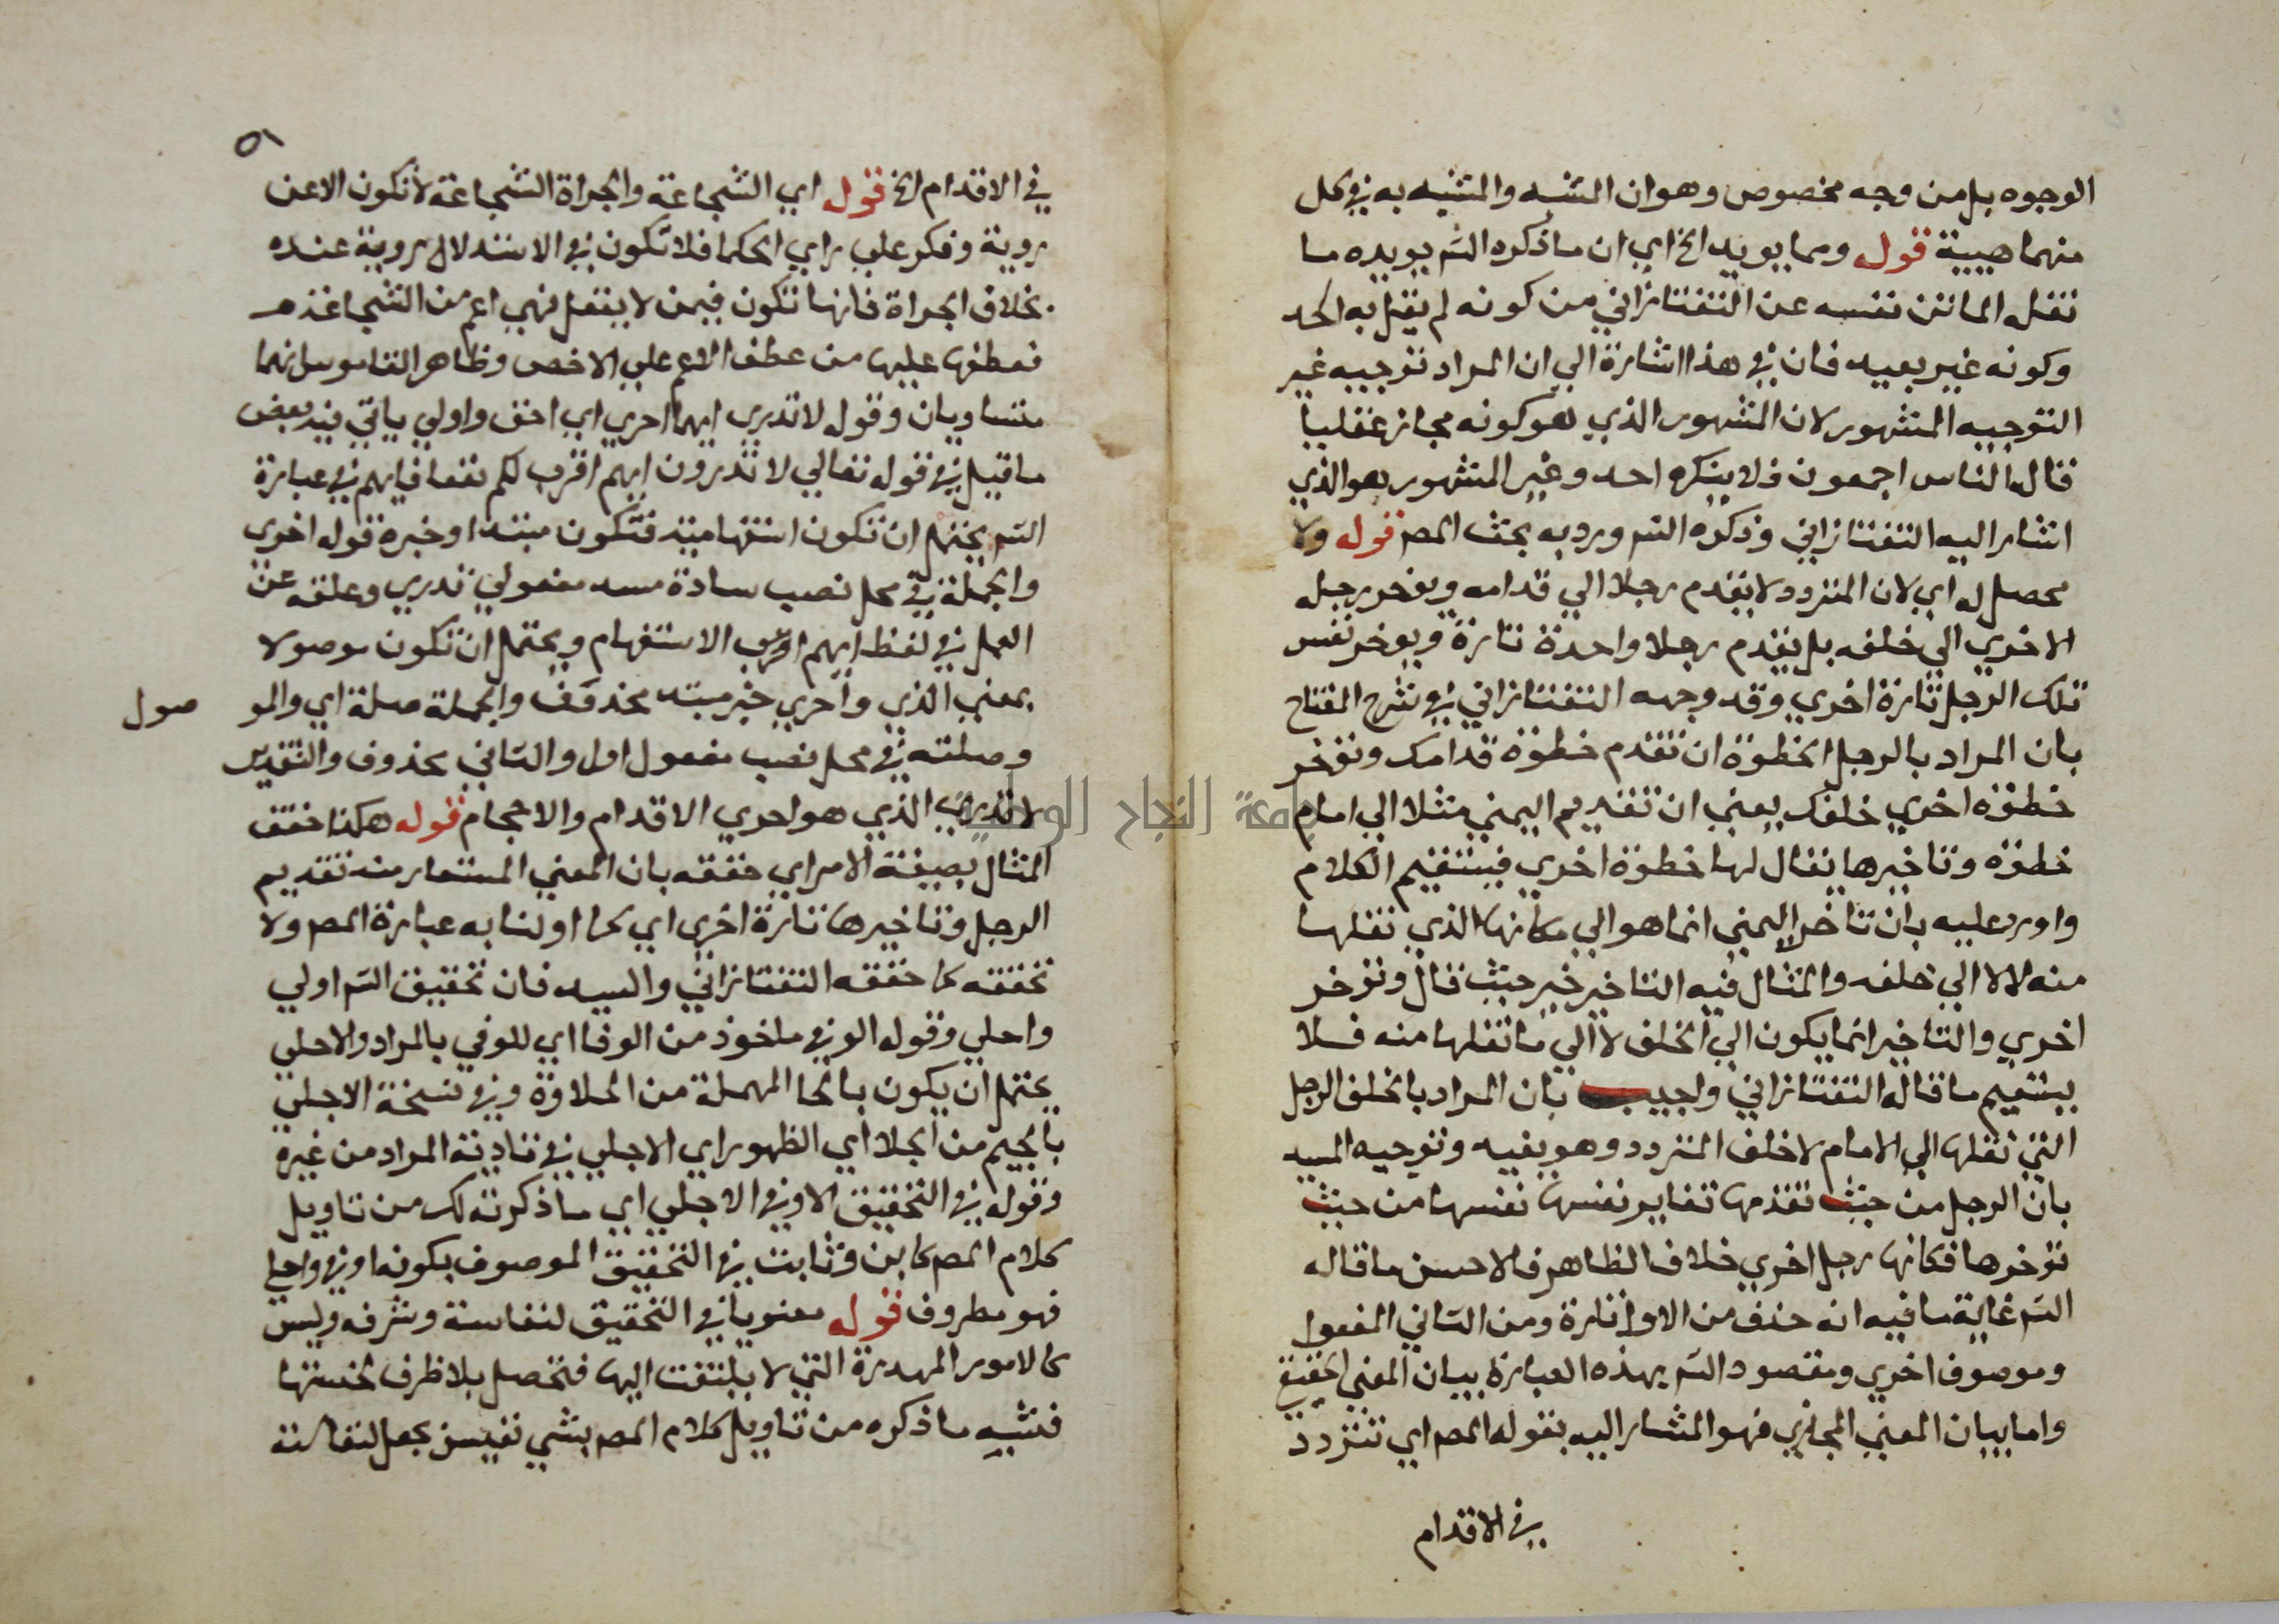 الوجوه بل من وجه مخصوص وهو ان المشبه والمشبه به في كل
منهما هيية قوله ومما يويد الخ اي ان ما ذكره الشم يويده ما
نقل الماتن نفسه عن التفتازاني من كونه لم يقل به احد
وكونه غير بعيد فان في هذا اشارة الي ان المراد توجيه غير
التوجيه المشهور لان المشهور الذي هو كونه مجاز عقليا
قاله الناس اجمعون فلا ينكره احد وغير المشهور هو الذي
اشار اليه التفتازاني وذكره الشم ورد به بحث المصم قوله ولا
محصل له اي لان المتردد لا يقدم رجلا الي قدامه ويوخر رجله
الاخري الي خلفه بل يقدم رجلا واحدة تارة ويوخر نفس
تلك الرجل تارة اخري وقد وجهه التفتازاني في شرح المفتاح
بان المراد بالرجل الخطوة ان تقدم خطوة قدامك وتوخر
خطوة اخري خلفك يعني ان تقديم اليمني مثلا الي امام
خطوة وتاخيرها يقال لها خطوة اخري فيستقيم الكلام
واورد عليه بان تاخر اليمني انما هو الي مكانها الذي نقلها
منه لا الا الي خلفه والمثال فيه التاخير خير حيث قال وتوخر
اخري والتاخير انما يكون الي الخلف لا الي ما نقلها منه فلا
يستقيم ما قاله التفتازاني واجيب بان المراد بالخلف الرجل
التي نقلها الي الامام لا خلف المتردد وهو بعيد وتوجيه السيد
بان الرجل من حيث تقدمها تغاير نفسها نفسها من حيث
توخرها فكانها رجل اخري خلاف الظاهر فالاحسن ما قاله
الشم غاية ما فيه انه حذف من الاول تارة ومن الثاني المفعول
وموصوف اخري ومقصود الشم بهذه العبارة بيان المعني الحقيقي
واما بيان المعني المجازي فهو المشار اليه بقوله المصم اي تتردد
في الاقدام
في الاقدام الخ قوله اي الشجاعة والجراة الشجاعة لا تكون الا عن
روية وفكر علي راي الحكما فلا تكون في الاسد لال روية عنده
بخلاف الجراة فانها تكون فيمن لا يعقل فهي اعم من الشجاعة
فعطفها عليها من عطف الاعم علي الاخص وظاهر القاموس انهما
متساويان وقوله لا تدري ايهما احري اي احق واولي ياتي فيه بعض
ما قيل في قوله تعالي لا تدرون ايهم اقرب لكم نفعا فايهم في عبارة
الشم يحتمل ان تكون استفهامية فتكون مبتدا وخبره قوله احري
والجملة في محل نصب سادة مسد مفعولي تدري وعلقه عن
العمل في لفظ ايهم اقرب الاستفهام ويحتمل ان تكون موصولا
بمعني الذي واحري خبر مبتد محذوف والجملة صلة اي والمو صول
وصلته في محل نصب مفعول اول والثاني محذوف والتقدير
لا تدري الذي هو احري الاقدام والاحجام قوله هكذا حقق
المثال بصيغة الامر اي حققه بان المعني المستعار منه تقديم
الرجل وتاخيرها تارة اخري اي كما اولنا به عبارة المصم ولا
تحققه كما حققه التفتازاني والسيد فان تحقيق الشم اولي
واحلي وقوله الوفي ماخوذ من الوفا اي للوفي بالمراد والاحلي
يحتمل ان يكون بالحا المهملة من الحلاوة وفي نسخة الاجلي
بالجيم من الجلا اي الظهور اي الاجلي في تادية المراد من غيره
وقوله في التحقيق الاوفي الاجلي اي ما ذكرته لك من تاويل
كلام المصم كاين وثابت في التحقيق الموصوف بكونه اوفي واحلي
فهو مظروف قوله معنويا في التحقيق لنفاسة وشرفه وليس
كالامور المهدرة التي لا يلتفت اليها فتحصل بلا ظرف لخستها
فشبه ما ذكره من تاويل كلام المصم بشي نفيس يجعل لنفاسته
جامعة النجاح الوطنية